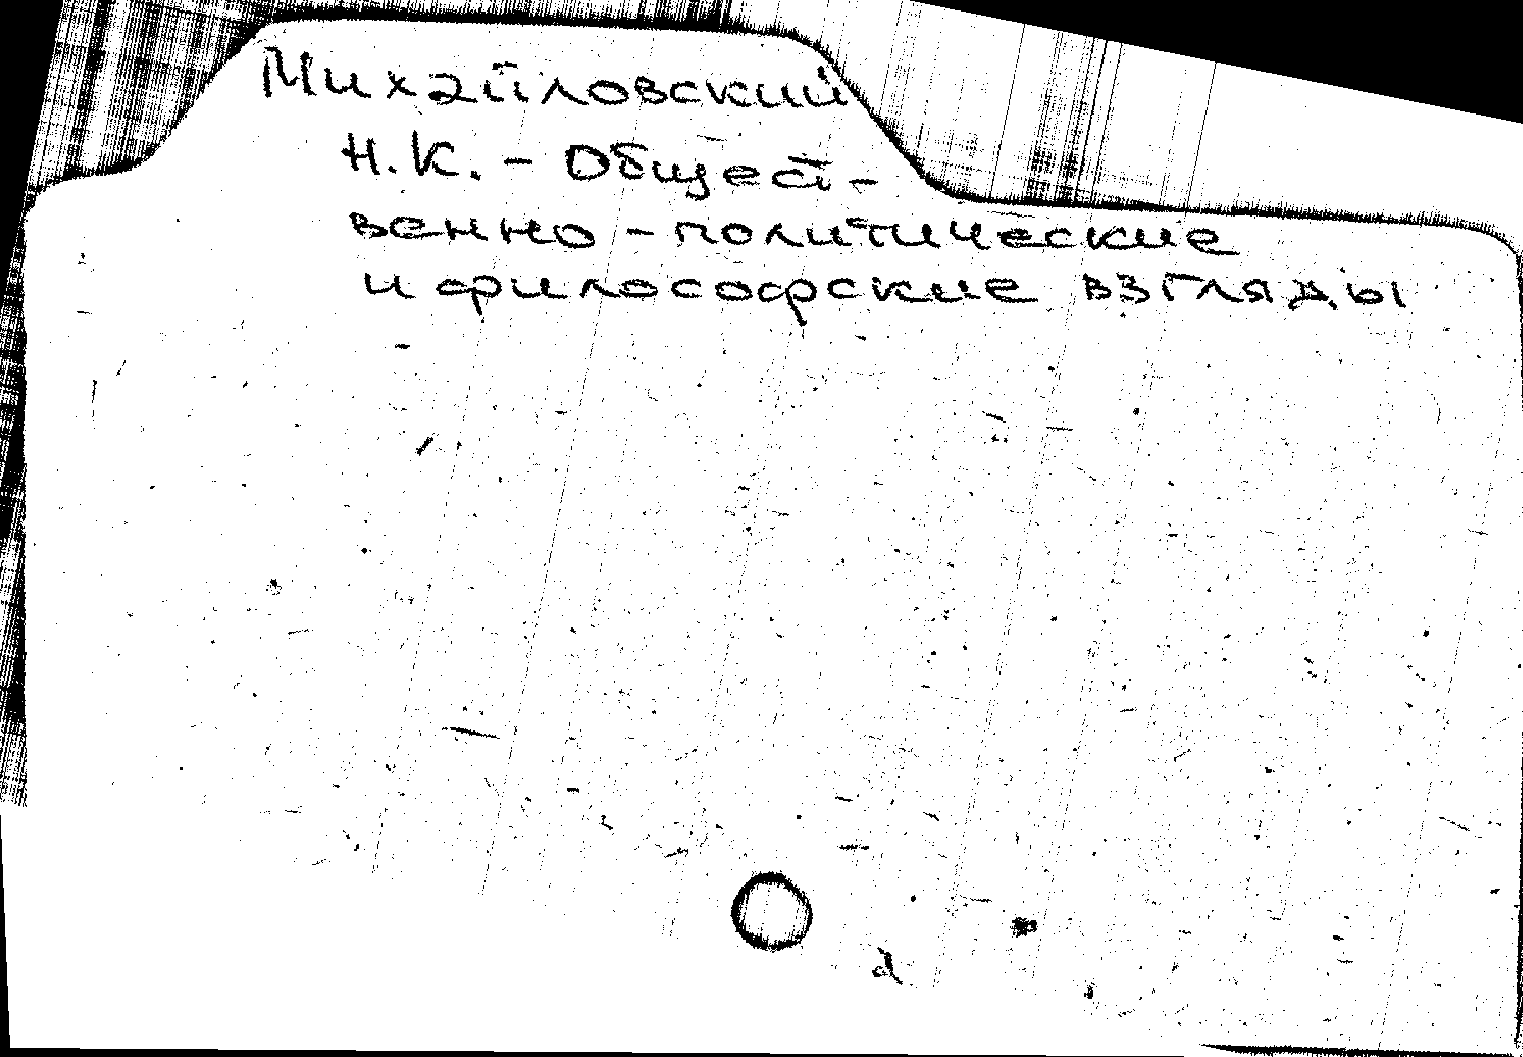 Михайловский
Н.К. - Общест-
венно-политические
и философские взгляды